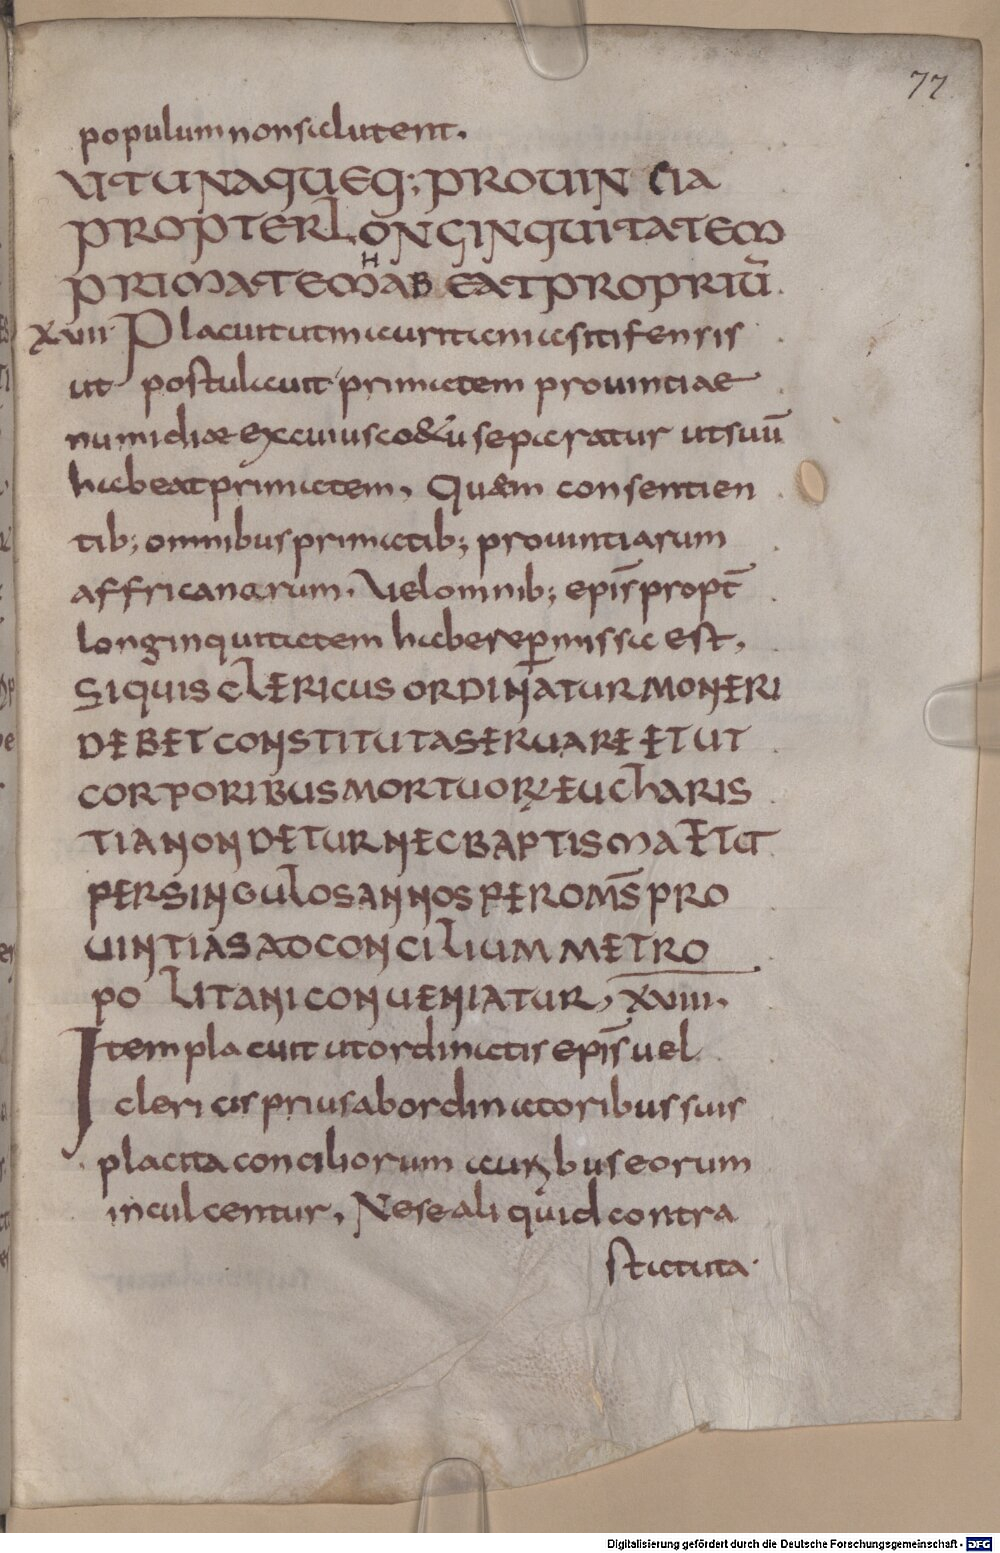 77
populum non salutent.
UT UNAQUEQ; PROUINCIA
PROPTER LONGINQUITATEM
PRIMATEM HABEAT PROPRIŪ.
XVII Placuit ut mauritania sitifensis
ut postulauit primatem prouintiae
numidiae ex cuius co&ū separatur ut suū
habeat primatem. Quam consentien
tib; omnibus primatib; prouintiarum
affricanarum. Uel omnib; epīs propt̄
longinquitatem habere permissa est.
SI QUIS CLERICUS ORDINATUR MONERI
DEBET CONSTITUTA SERUARE ET UT
CORPORIBUS MORTUORꝜ EUCHARIS
TIA NON DETUR NEC BAPTISMA ET UT
PER SINGULOS ANNOS PER OMS̄ PRO
UINTIAS AD CONCILIUM METRO
POLITANI CONUENIATUR, XVIII.
Item placuit ut ordinatis epīs uel
clericis prius ab ordinatoribus suis
placita conciliorum auribus eorum
inculcentur. Ne se aliquid contra
statuta
Digitalisierung gefördert durch die Deutsche Forschungsgemeinschaft - DFG